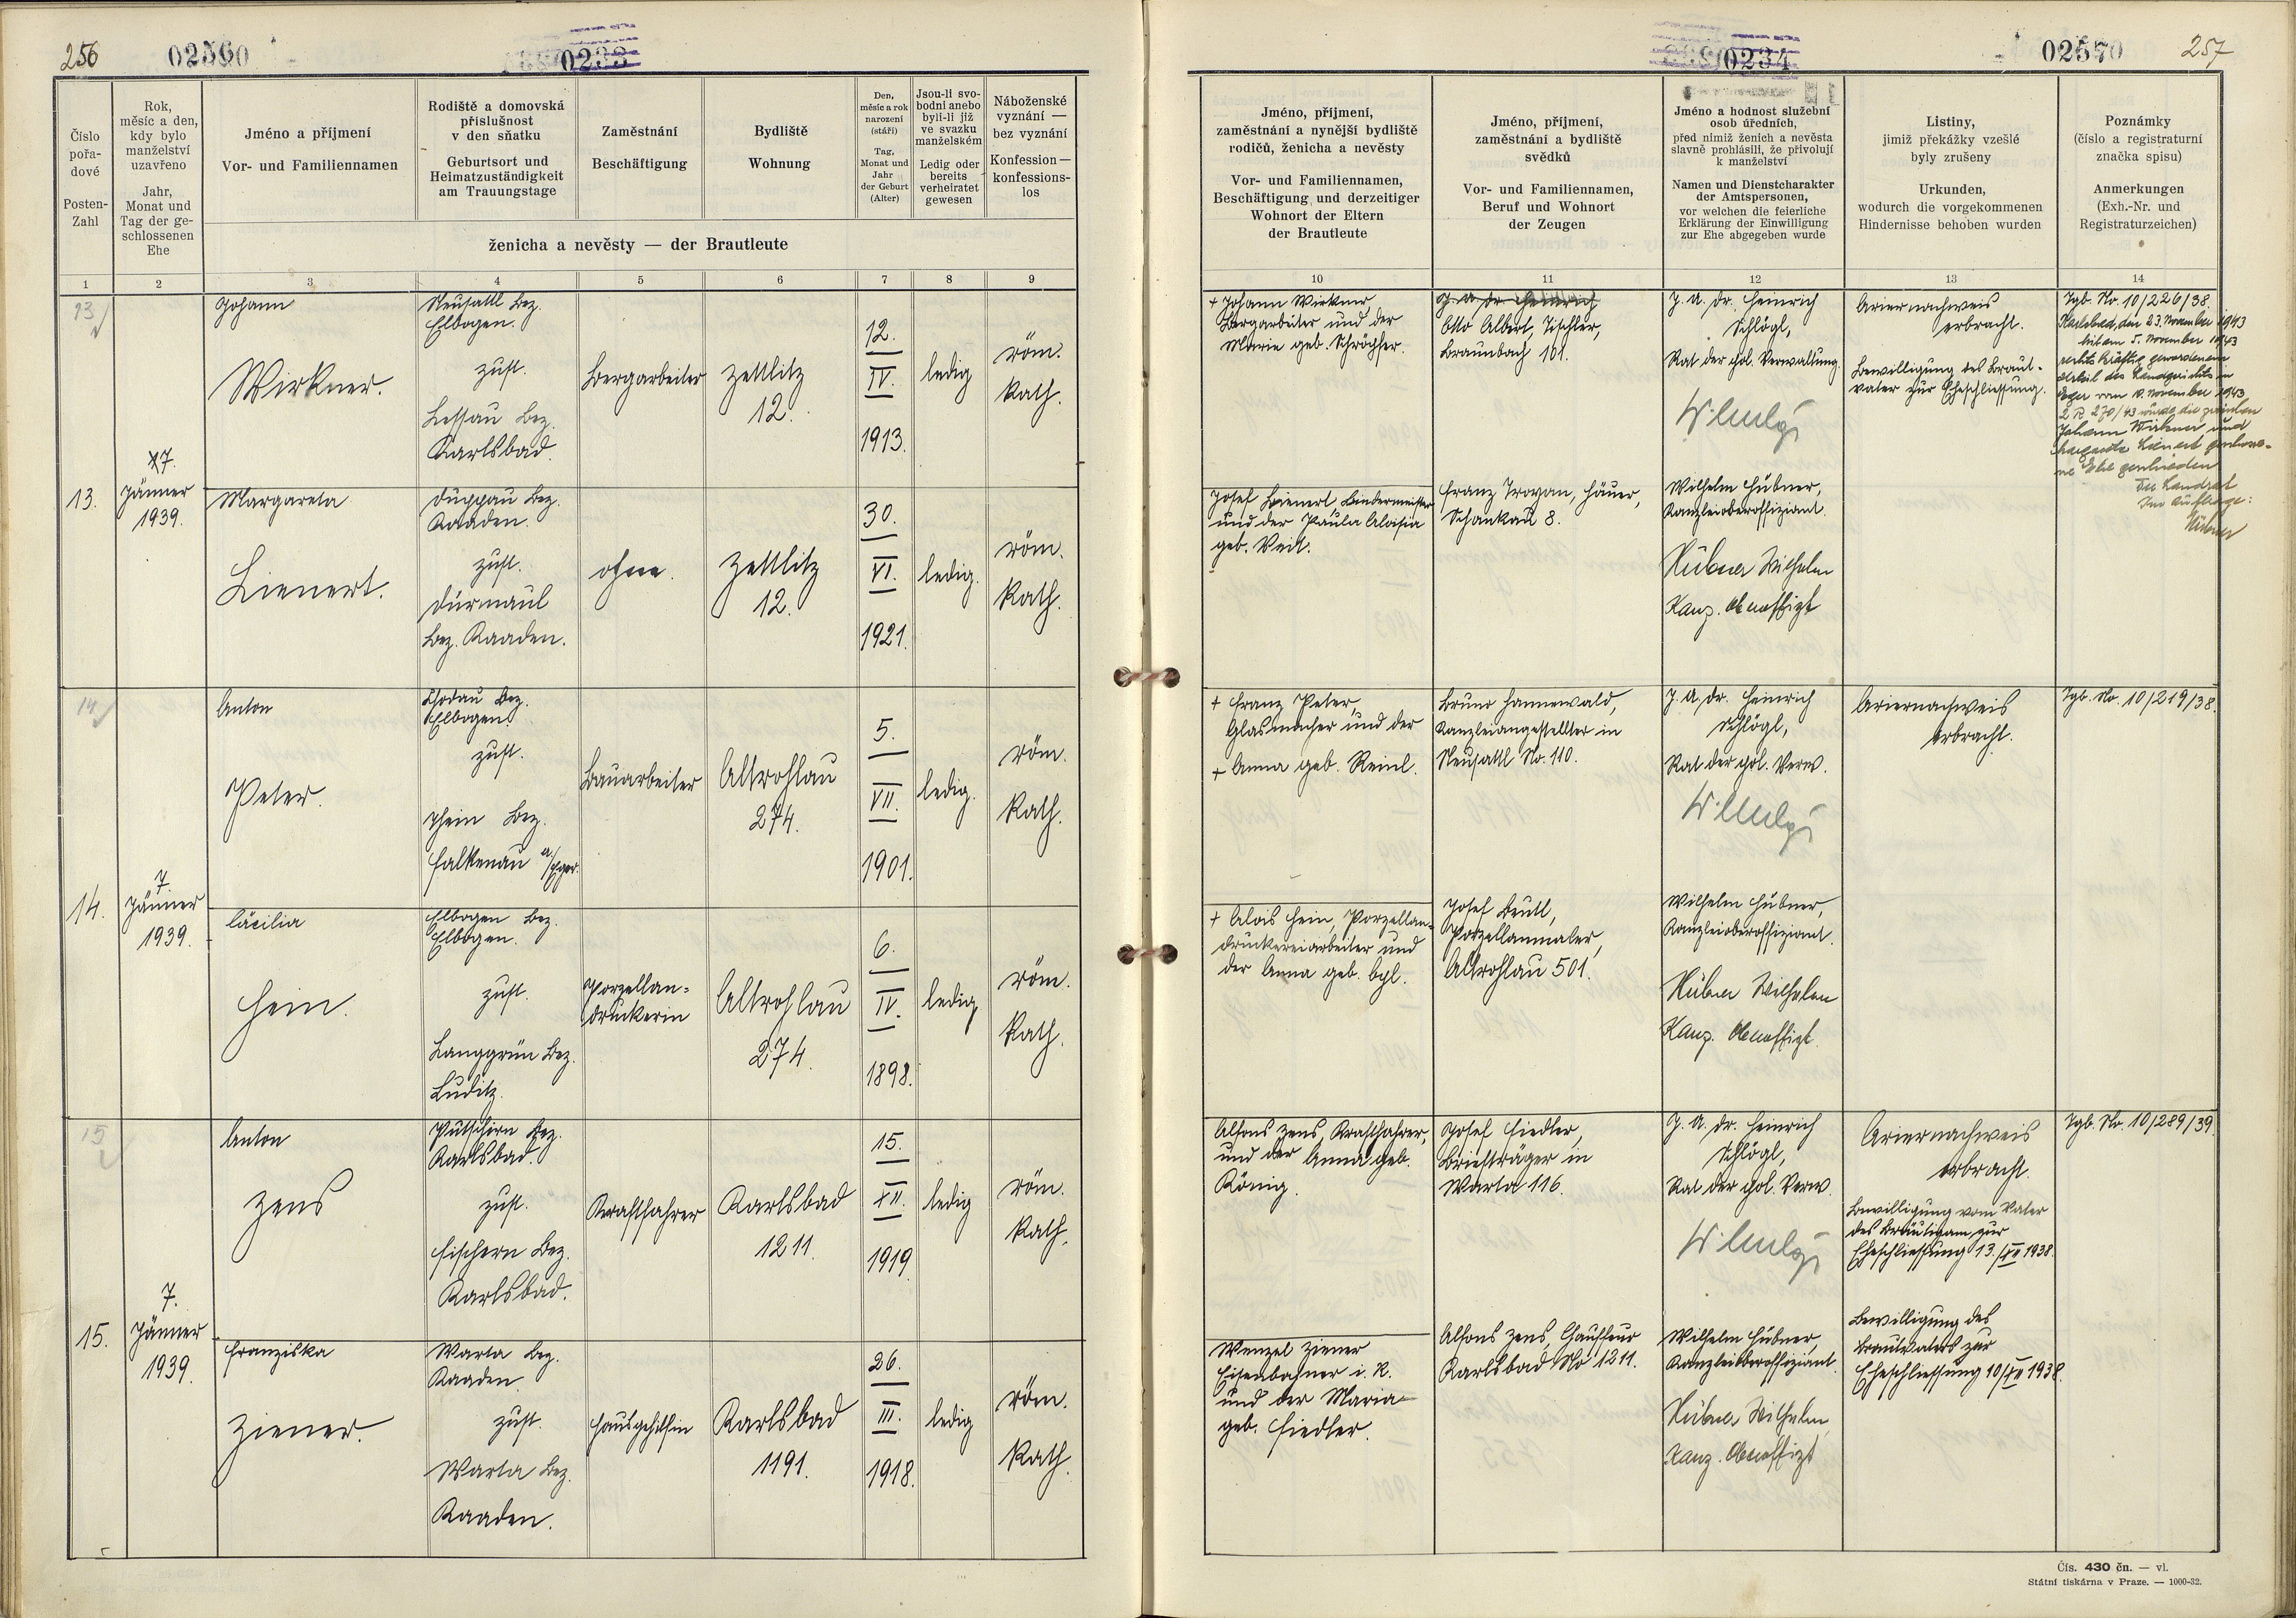 256
02560
0233
Číslo
pořa-
dové
Posten-
Zahl
Rok,
měsíc a den,
kdy bylo
manželství
uzavřeno
Jahr,
Monat und
Tag der ge-
schlossenen
Ehe
Jméno a příjmení
Vor- und Familiennamen
Rodiště a domovská
příslušnost
v den sňatku
Geburtsort und
Heimatzuständigkeit
am Trauungstage
Zaměstnání
Beschäftigung
Bydliště
Wohnung
Den,
měsíc a rok
narození
(stáří)
Tag,
Monat und
Jahr
der Geburt
(Alter)
Jsou-li svo-
bodni anebo
byli-li již
ve svazku
manželském
Ledig oder
bereits
verheiratet
gewesen
Náboženské
vyznání —
bez vyznání
Konfession —
konfessions-
los
ženicha a nevěsty — der Brautleute
1 2 3 4 5 6 7 8 9
13
13.
7.
Jänner
1939.
Johann
Wirkner.
Neusattl Bez.
Elbogen.
zust.
Lessau Bez.
Karlsbad.
Bergarbeiter
Zettlitz
12.
12.
IV.
1913.
ledig
röm.
kath.
Margareta
Lienert.
Duppau Bez.
Kaaden.
zust.
Dürmaul
Bez. Kaaden.
ohne.
Zettlitz
12.
30.
VI.
1921.
ledig.
röm.
kath.
14
14.
7.
Jänner
1939.
Anton
Peter.
Chodau Bez.
Elbogen.
zust.
Thein Bez.
Falkenau a/Eger.
Bauarbeiter
Altrohlau
274.
5.
VII.
1901.
ledig.
röm.
kath.
Cäcilia
Hein.
Elbogen Bez.
Elbogen.
zust.
Langgrün Bez.
Luditz.
Porzellan-
druckerin
Altrohlau
274.
6.
IV.
1898.
ledig
röm.
kath.
15
15.
7.
Jänner
1939.
Anton
Zens
Putschirn Bez.
Karlsbad.
zust.
Fischern Bez.
Karlsbad.
Kraftfahrer
Karlsbad
1211.
15.
XII.
1919
ledig
röm.
kath.
Franziska
Ziener.
Warta Bez.
Kaaden.
zust.
Warta Bez.
Kaaden.
Hausgehilfin
Karlsbad
1191.
26.
III.
1918.
ledig
röm.
kath.
0234
02570
257
Jméno, příjmení,
zaměstnání a nynější bydliště
rodičů, ženicha a nevěsty
Vor- und Familiennamen,
Beschäftigung und derzeitiger
Wohnort der Eltern
der Brautleute
Jméno, příjmení,
zaměstnání a bydliště
svědků
Vor- und Familiennamen,
Beruf und Wohnort
der Zeugen
Jméno a hodnost služební
osob úředních,
před nimiž ženich a nevěsta
slavně prohlásili, že přivolují
k manželství
Namen und Dienstcharakter
der Amtspersonen,
vor welchen die feierliche
Erklärung der Einwilligung
zur Ehe abgegeben wurde
Listiny,
jimiž překážky vzešlé
byly zrušeny
Urkunden,
wodurch die vorgekommenen
Hindernisse behoben wurden
Poznámky
(číslo a registraturní
značka spisu)
Anmerkungen
(Exh.-Nr. und
Registraturzeichen)
10 11 12 13 14
+ Johann Wirkner
Bergarbeiter und der
Marie geb.
J. u. Dr. Heinrich
Otto Albert, Tischler,
Braunbach 101.
J. U. Dr. Heinrich
Schlögl,
Rat der pol. Verwaltung.
Ariernachweis
erbracht.
Bewilligung des Braut-
vater zur Eheschliessung.
Tgb. No. 10/226/38.
Karlsbad, den 23. November 1943
Mit am 5. November 1943
rechtskräftig gewordenem
Urteil des Landgerichts in
Eger vom November 1943
2 R 270/43 wurde die zwischen
Johann Wirkner und
Margareta Lienert geschlosse-
ne Ehe geschieden
Der Landrat
Im Auftrage:
Hübner
Josef Lienert,
und der Paula Aloisia
geb. Veit.
Franz Häuer,
Schankau 8.
Wilhelm Hübner,
Kanzleioberoffiziant.
Hübner Wilhelm
Kanz. Oberoffizt
+ Franz Peter,
Glasmacher und der
+ Anna geb. Reinl.
Bruno Hannewald,
Kanzleiangestellter in
Neusattl No. 110.
J. U. Dr. Heinrich
Schlögl,
Rat der pol. Verw.
Ariernachweis
erbracht.
Tgb. No. 10/219/38.
+ Alois Hein, Porzellan-
druckereiarbeiter und
der Anna geb.
Josef Beutl,
Porzellanmaler,
Altrohlau 501.
Wilhelm Hübner,
Kanzleioberoffiziant.
Hübner Wilhelm
Kanz. Oberoffizt.
Alfons Zens, Kraftfahrer,
und der Anna geb.
König.
Josef Fiedler,
Briefträger in
Warta 116.
J. U. Dr. Heinrich
Schlögl,
Rat der pol. Verw.
Ariernachweis
erbracht.
Bewilligung vom Vater
des Bräutigam zur
Eheschliessung 13./XII 1938.
Tgb. No. 10/289/39.
Wenzel Ziener
Eisenbahner i. R.
und der Maria
geb. Fiedler.
Alfons Zens, Chauffeur
Karlsbad No 1211.
Wilhelm Hübner,
Kanzleioberoffiziant.
Hübner Wilhelm
Kanz. Oberoffizt
Bewilligung des
Brautvaters zur
Eheschliessung 10/XII 1938.
Čís. 430 čn. — vl.
Státní tiskárna v Praze. — 1000-32.